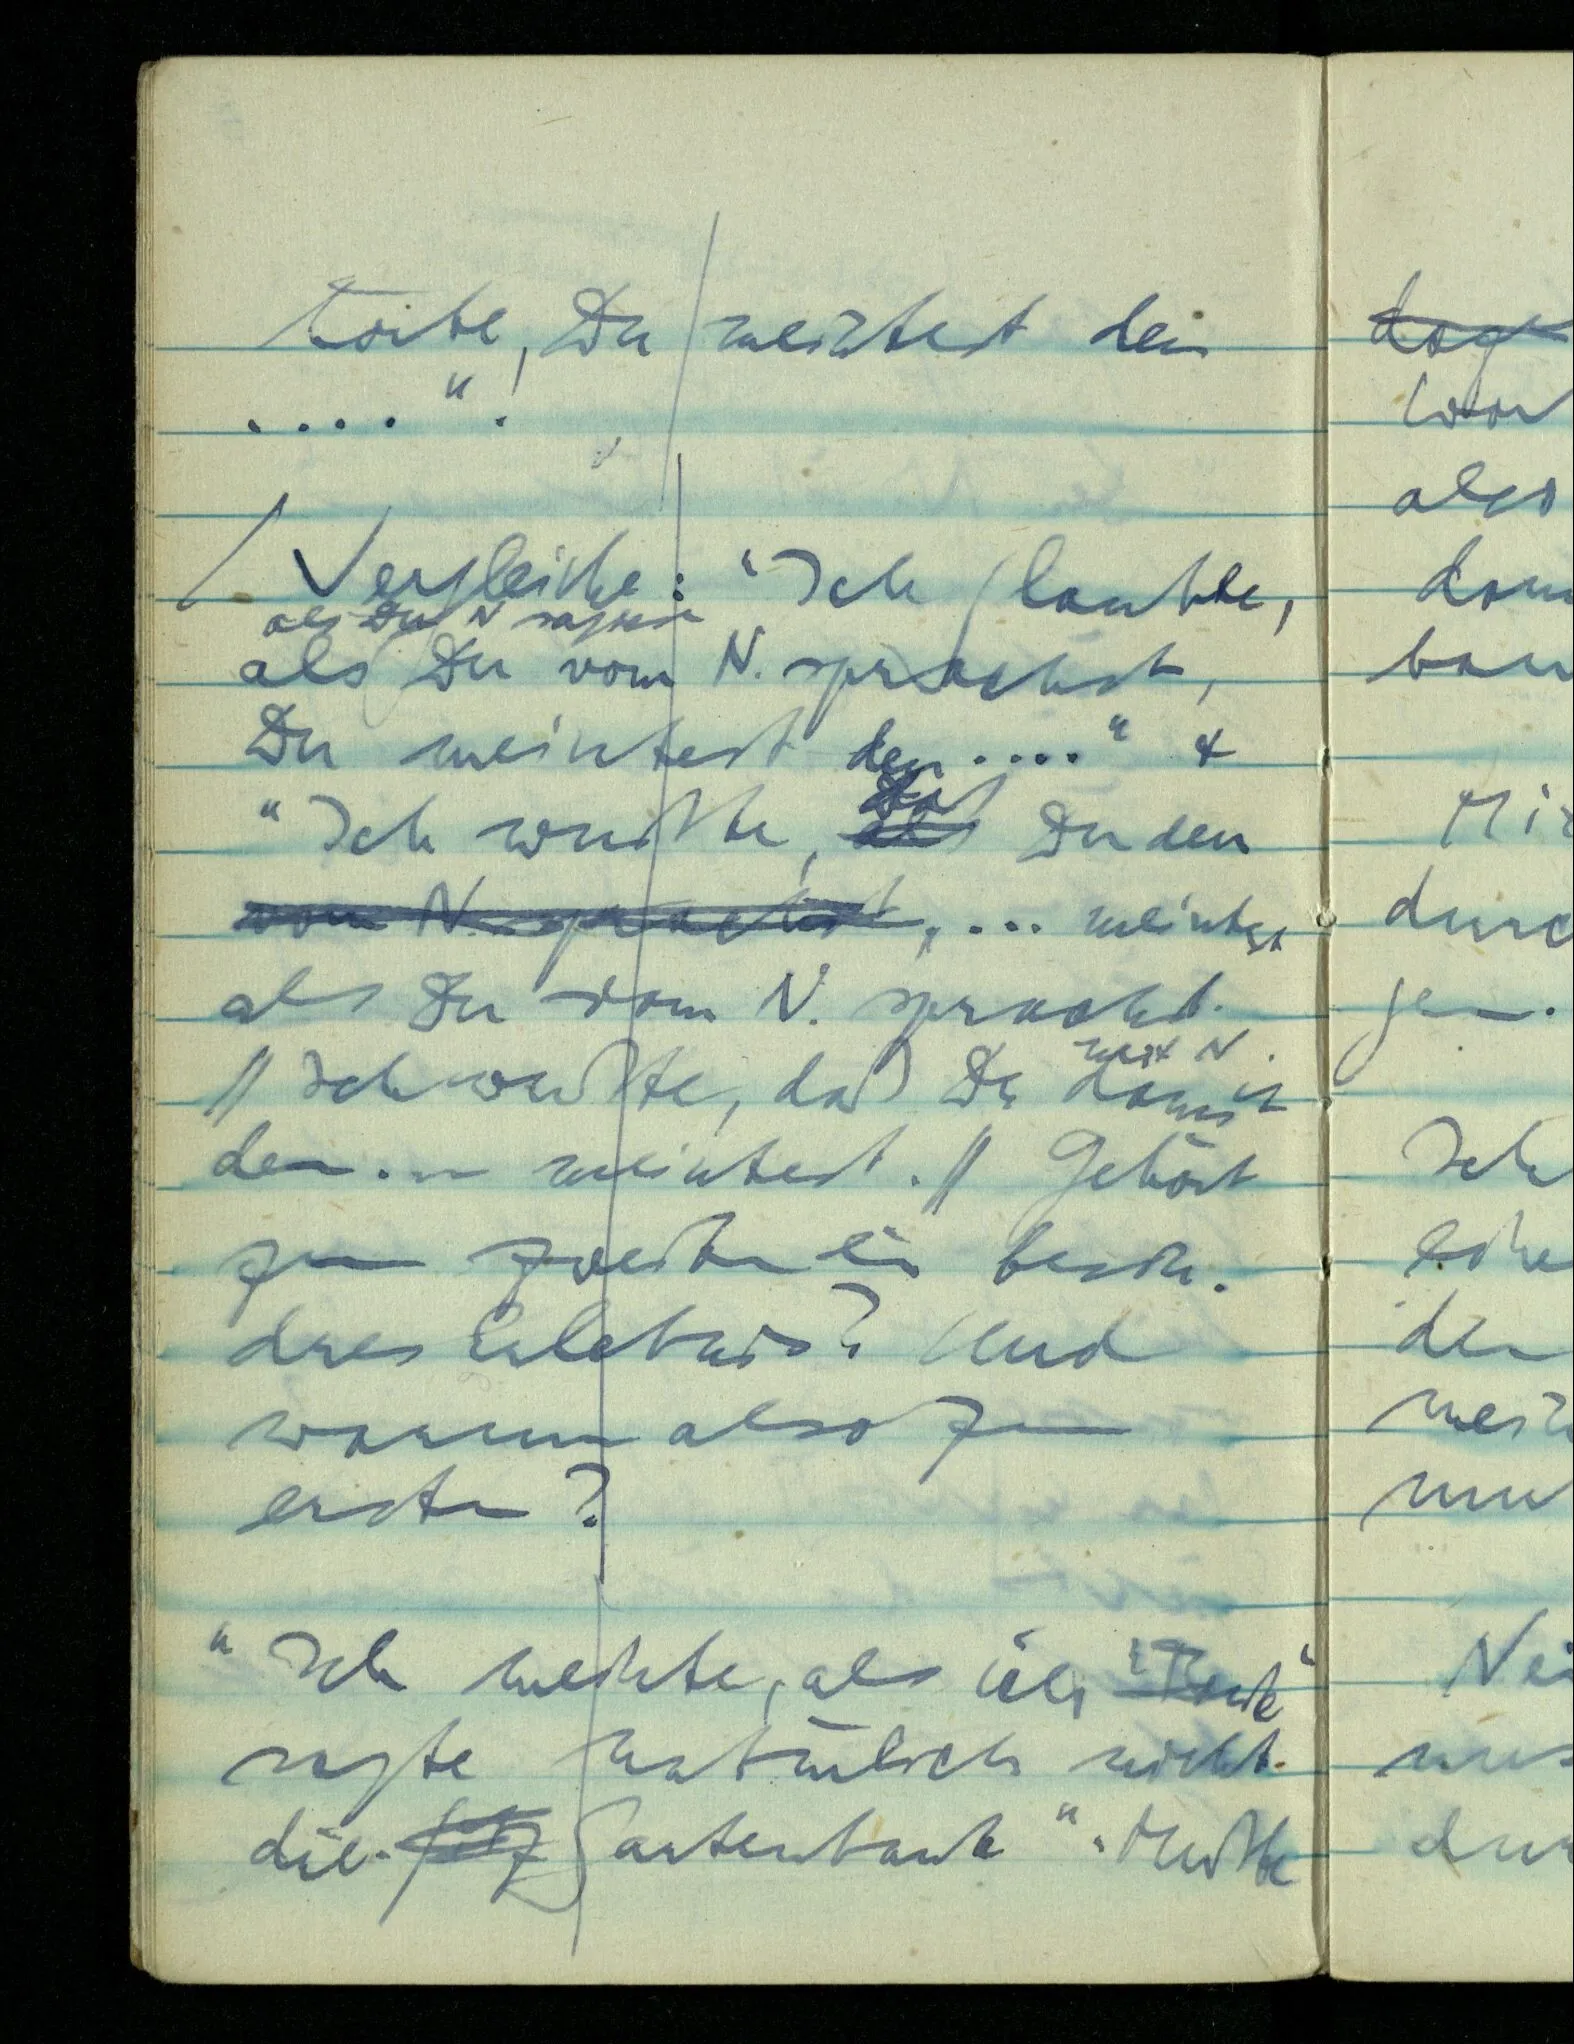 hörte, Du meintest den
....".
/ Vergleiche: "Ich glaubte,
als Du N sagtest
als Du vom N. sprachst,
Du meintest den ...." &
"Ich wußte, daß Du den
vom N. sprachst, ... meintest
als Du vom N. sprachst.
mit N.
// Ich wußte, daß Du damit
den ... meintest. // Gehört
zum zweiten ein beson-
dres Erlebnis? Und
warum also zum
ersten?
"Ich meinte, als ich 'Bank'
sagte natürlich nicht
die Gartenbank". Mußte
also
dur